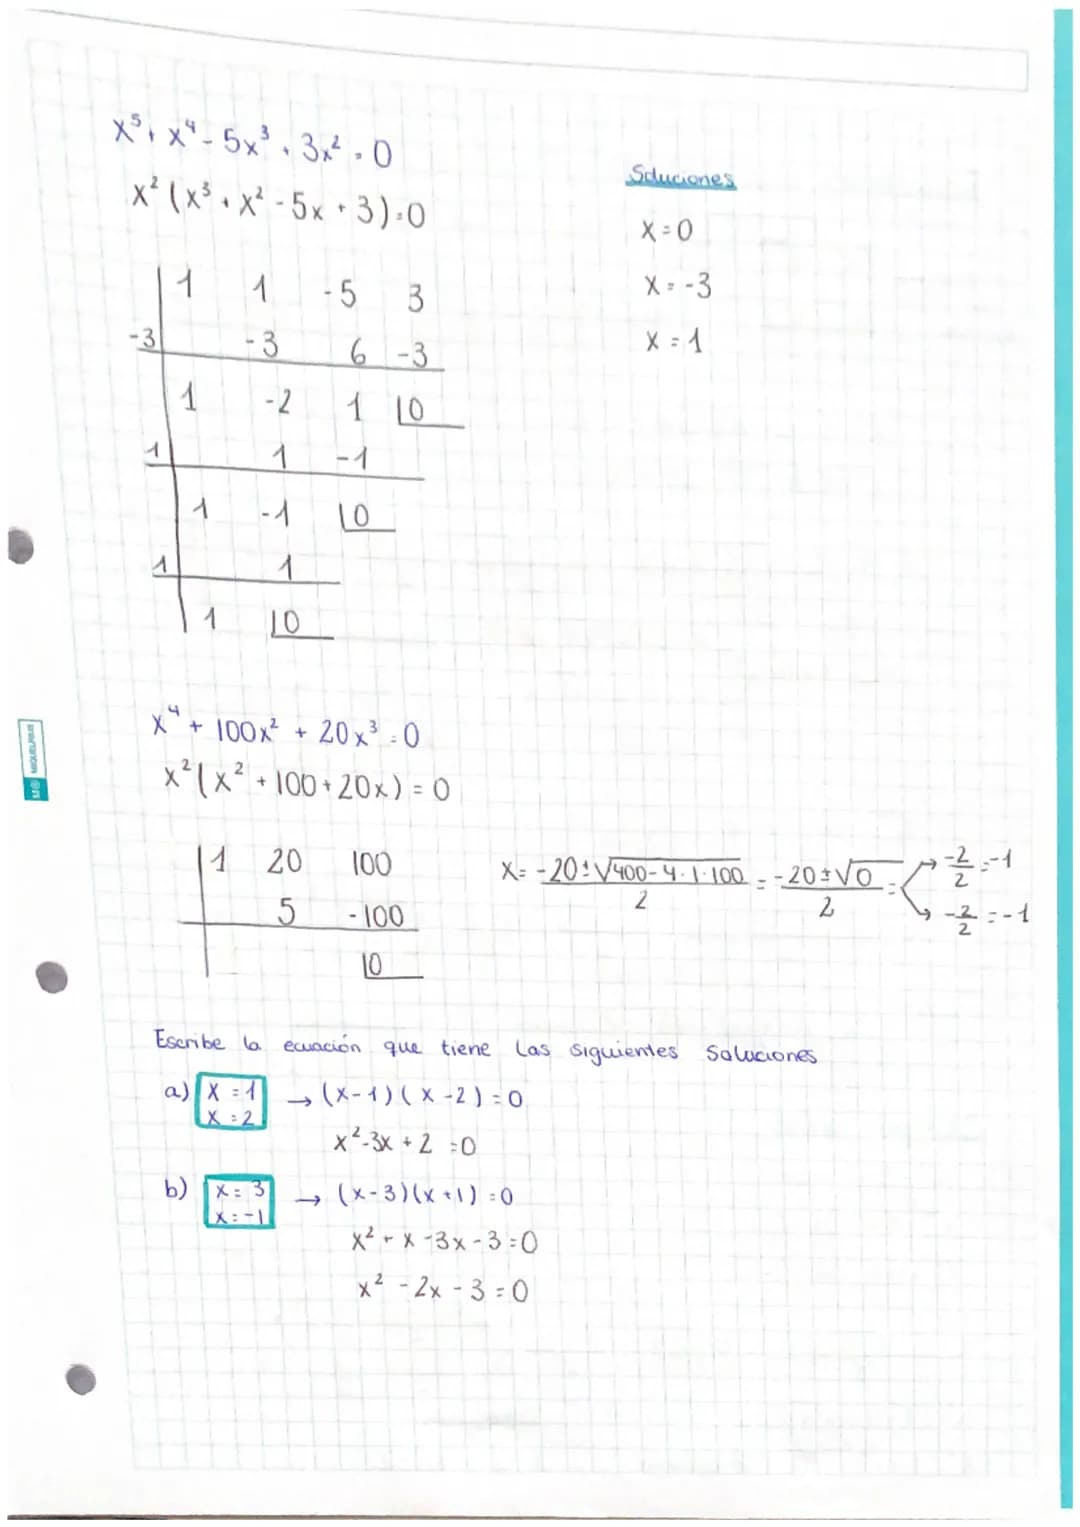 x⁵+ x⁴ - 5x³ + 3x² = 0
x² (x³ + x² - 5x + 3) = 0
1 1 -5 3
-3 -3 6 -3
1 -2 1 |0
1 1 -1
1 -1 |0
1 1
1 |0
Soluciones
x = 0
x = -3
x = 1
x⁴ + 100x² + 20x³ = 0
x² (x² + 100 + 20x) = 0
1 20 100
5 -100
|0
x = -20 ± √400 - 4·1·100 / 2 = -20 ± √0 / 2 = → -2/2 = -1
↘ -2/2 = -1
Escribe la ecuación que tiene las siguientes soluciones
a) x = 1 → (x-1)(x-2) = 0
x = 2
x² - 3x + 2 = 0
b) x = 3 → (x-3)(x+1) = 0
x = -1
x² + x - 3x - 3 = 0
x² - 2x - 3 = 0
MIQUELRIUS